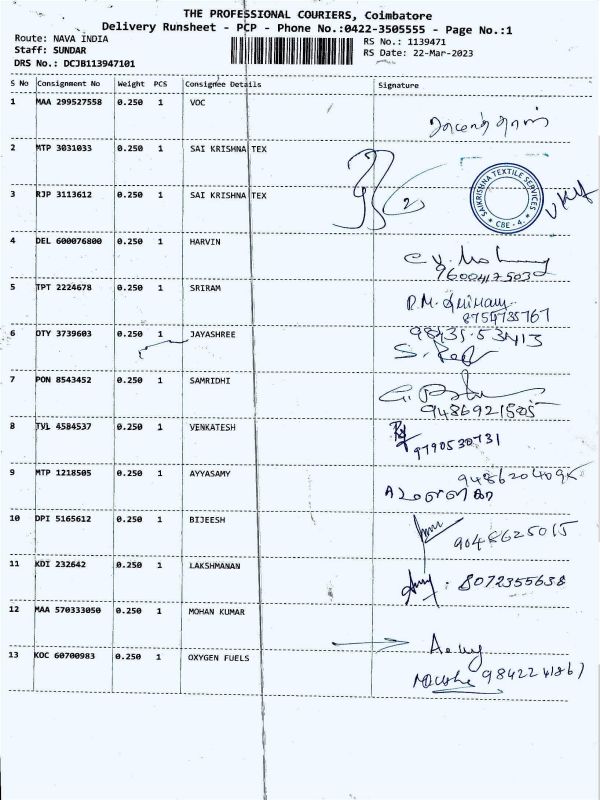 THE PROFESSIONAL COURIERS, Coimbatore
Delivery Runsheet - PCP - Phone No.:0422-3505555 - Page No.:1
Route: NAVA INDIA RS No.: 1139471
Staff: SUNDAR RS Date: 22-Mar-2023
DRS No.: DCJB113947101
S No Consignment No Weight PCS Consignee Details Signature
1 MAA 299527558 0.250 1 VOC
2 MTP 3031033 0.250 1 SAI KRISHNA TEX
SAIKRISHNA TEXTILE SERVICES
* CBE - 4. *
3 RJP 3113612 0.250 1 SAI KRISHNA TEX
4 DEL 600076800 0.250 1 HARVIN
9600417503
5 TPT 2224678 0.250 1 SRIRAM
8754735767
6 OTY 3739603 0.250 1 JAYASHREE
98435.53413
7 PON 8543452 0.250 1 SAMRIDHI
9486921505
8 TVL 4584537 0.250 1 VENKATESH
9790530731
9 MTP 1218505 0.250 1 AYYASAMY
10 DPI 5165612 0.250 1 BIJEESH
9048625015
11 KDI 232642 0.250 1 LAKSHMANAN
8072355638
12 MAA 570333050 0.250 1 MOHAN KUMAR
13 KOC 60700983 0.250 1 OXYGEN FUELS
9842241867